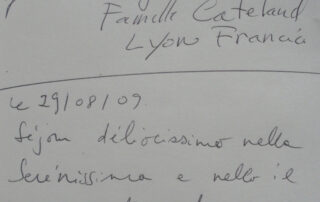 Famille Cateland
Lyon Francia
le 29/08/09.
Séjour déliocissimo nella
Serénissima e nello il